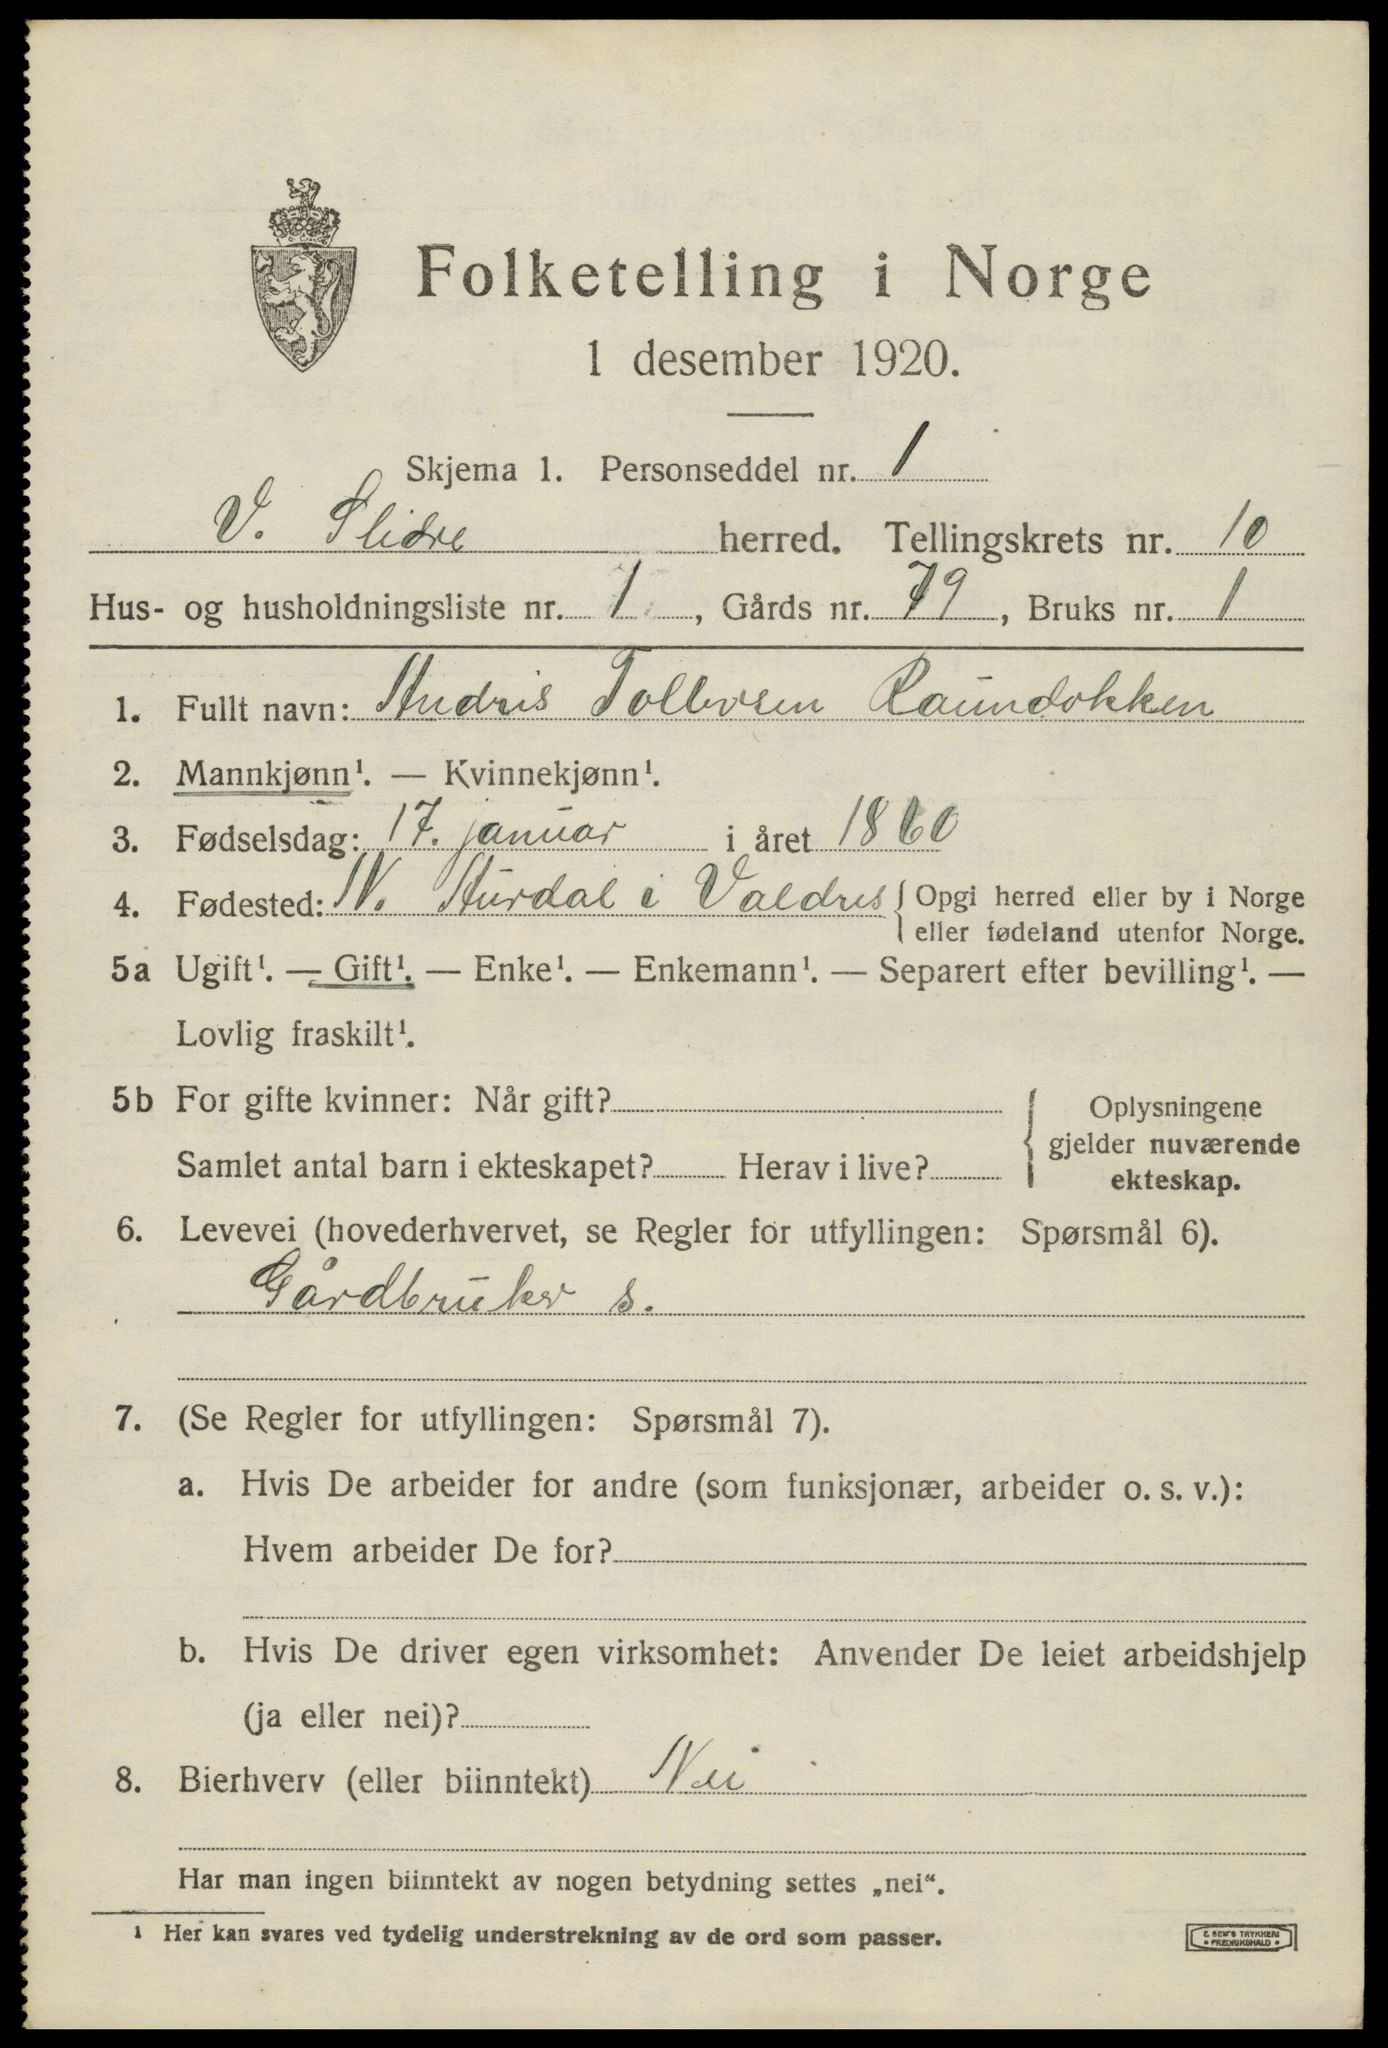 Folketelling i Norge
1 desember 1920.
Skjema 1. Personseddel nr. 1
V. Slidre herred. Tellingskrets nr. 10
Hus- og husholdningsliste nr. 1, Gårds nr. 79, Bruks nr. 1
1. Fullt navn: Andris Tollevsen Raundokken
2. Mannkjønn¹. — Kvinnekjønn¹.
3. Fødselsdag: 17. januar i året 1860
4. Fødested: N. Aurdal i Valdres { Opgi herred eller by i Norge
eller fødeland utenfor Norge.
5a Ugift¹. — Gift¹. — Enke¹. — Enkemann¹. — Separert efter bevilling¹. —
Lovlig fraskilt¹.
5b For gifte kvinner: Når gift?
Samlet antal barn i ekteskapet? Herav i live?
Oplysningene
gjelder nuværende
ekteskap.
6. Levevei (hovederhvervet, se Regler for utfyllingen: Spørsmål 6).
Gårdbruker s.
7. (Se Regler for utfyllingen: Spørsmål 7).
a. Hvis De arbeider for andre (som funksjonær, arbeider o. s. v.):
Hvem arbeider De for?
b. Hvis De driver egen virksomhet: Anvender De leiet arbeidshjelp
(ja eller nei)?
8. Bierhverv (eller biinntekt) Nei
Har man ingen biinntekt av nogen betydning settes „nei“.
1 Her kan svares ved tydelig understrekning av de ord som passer.
E. SEM'S TRYKKERI
• FREDRIKSHALD •